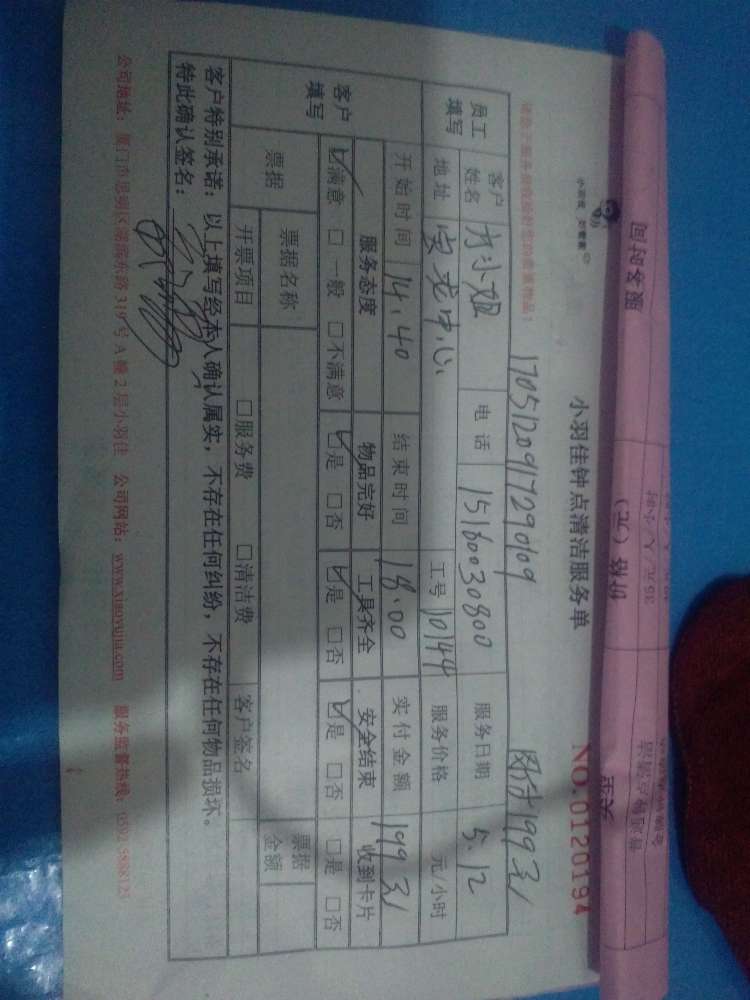 小羽佳钟点清洁服务单
NO.0120194
1705120917290109
网付199元
员工填写
客户姓名 方小姐 电话 15160030800 服务日期 5.12
地址 宝龙中心 工号 10144 服务价格 元/小时
开始时间 14.40 结束时间 18.00 实付金额 199元
客户填写
服务态度 物品完好 工具齐全 安全结束 收到卡片
☑满意 □一般 □不满意 ☑是 □否 ☑是 □否 ☑是 □否 □是 □否
票据 票据名称 票据金额
开票项目 □服务费 □清洁费 客户签名
客户特别承诺：以上填写经本人确认属实，不存在任何纠纷，不存在任何物品损坏。
特此确认签名：
公司地址：厦门市思明区湖滨东路319号A幢2层小羽佳 公司网站：www.xiaoyujia.com 服务监督热线：0592-3888125